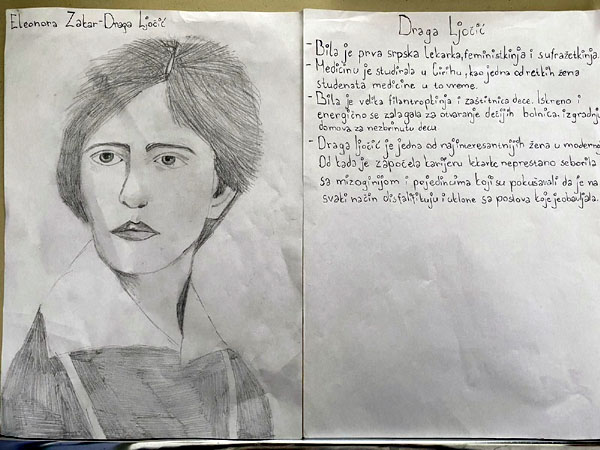 Eleonora Zakar-Draga Ljočić
Draga Ljočić
- Bila je prva srpska lekarka, feministkinja i sufražetkinja.
- Medicinu je studirala u Cirihu, kao jedna od retkih žena
studenata medicine u to vreme.
- Bila je velika filantropkinja i zaštitnica dece. Iskreno i
energično se zalagala za otvaranje dečijih bolnica, izgradnju
domova za nezbrinutu decu
- Draga Ljočić je jedna od najinteresantnijih žena u moderno
Od kada je započela karijeru lekarke neprestano se borila
sa mizoginijom i pojedincima koji su pokušavali da je na
svaki način i uklone sa poslova koje je obavljala.